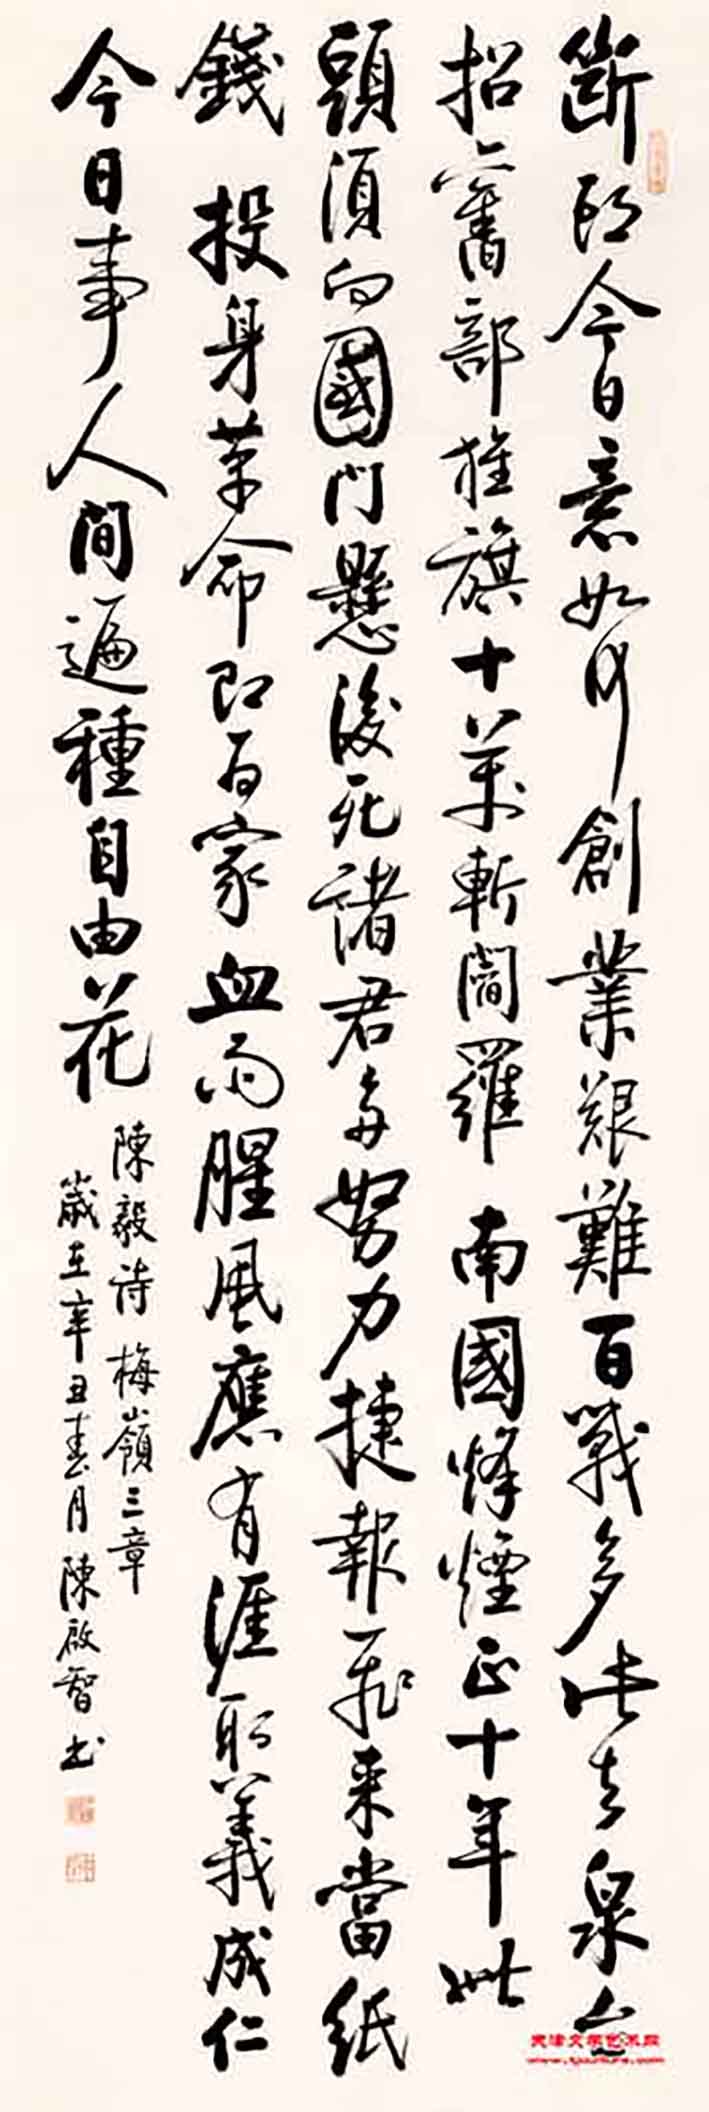 斷頭今日意如何創業艱難百戰多此去泉台
招舊部旌旗十萬斬閻羅 南國烽煙正十年此
頭須向國門懸後死諸君多努力捷報飛來當紙
錢 投身革命即為家血雨腥風應有涯取義成仁
今日事人間遍種自由花
陳毅詩梅嶺三章
歲在辛丑春月陳啟智书
天津文学艺术网